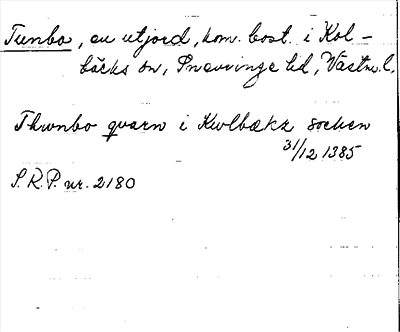 Tunbo, en utjord, kom. bost. i Kol-
bäcks sn, Snevringe hd, Västm. l.
Thunbo quarn i Kwlbækx sochen
31/12 1385
S.R.P. nr. 2180